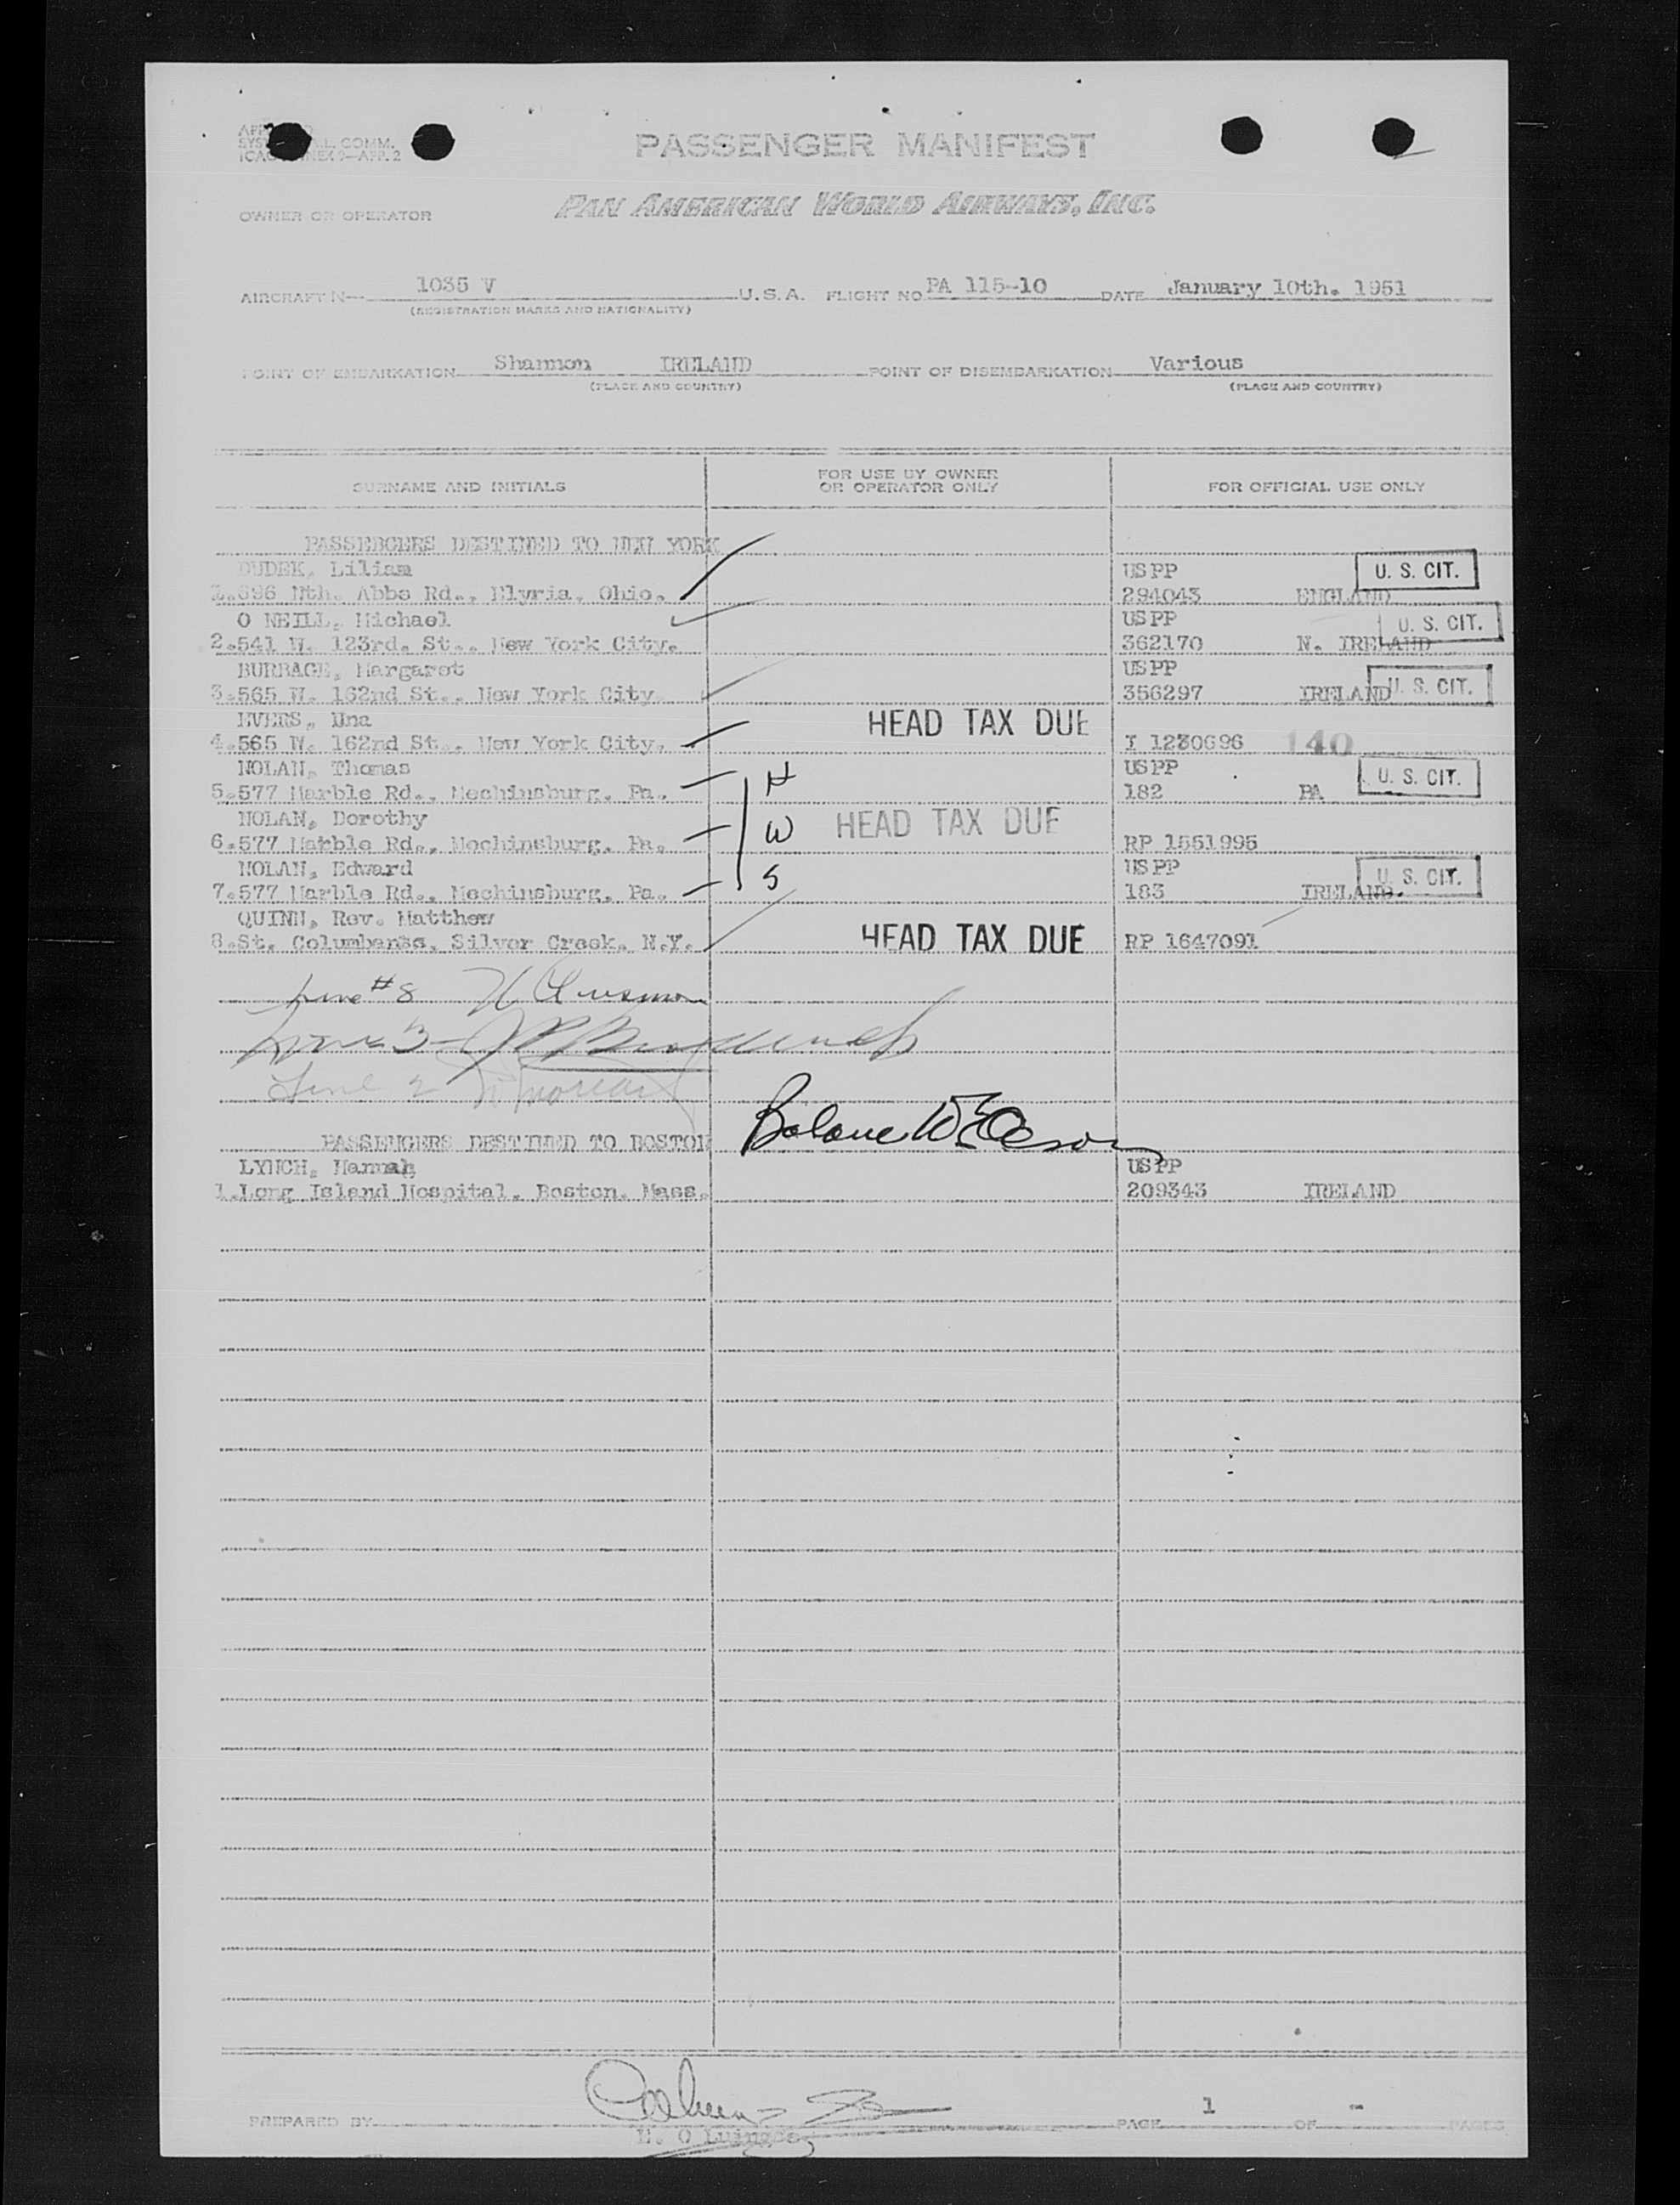 PASSENGER MANIFEST
L. COMM.
APP. 2
OWNER OR OPERATOR PAN AMERICAN WORLD AIRWAYS, INC.
AIRCRAFT N— 1035 V U.S.A. FLIGHT NO PA 115-10 DATE January 10th. 1951
(REGISTRATION MARKS AND NATIONALITY)
POINT OF EMBARKATION Shannon IRELAND POINT OF DISEMBARKATION Various
(PLACE AND COUNTRY) (PLACE AND COUNTRY)
SURNAME AND INITIALS FOR USE BY OWNER OR OPERATOR ONLY FOR OFFICIAL USE ONLY
PASSENGERS DESTINED TO NEW YORK
DUDEK, Liliam USPP U. S. CIT.
Nth. Abbe Rd., Elyria, Ohio. 294043 ENGLAND
O NEILL, Michael USPP U. S. CIT.
2.541 W. 123rd. St., New York City. 362170 N. IRELAND
BURBAGE, Margaret USPP
3.565 W. 162nd St., New York City 356297 IRELAND U. S. CIT.
EVERS, Una HEAD TAX DUE
4.565 W. 162nd St., New York City. I 1230696 140
NOLAN, Thomas H USPP U. S. CIT.
5.577 Marble Rd., Mechinsburg, Pa. 182 PA
NOLAN, Dorothy W HEAD TAX DUE
6.577 Marble Rd., Mechinsburg, Pa. RP 1551995
NOLAN, Edward S USPP U. S. CIT.
7.577 Marble Rd., Mechinsburg, Pa. 183 IRELAND.
QUINN, Rev. Matthew
8.St. Columbans, Silver Creek, N.Y. HEAD TAX DUE RP 1647091
Line #8
Line 3
Line 2
PASSENGERS DESTINED TO BOSTON Balance
LYNCH, Hannah USPP
1.Long Island Hospital, Boston. Mass. 209343 IRELAND
PREPARED BY PAGE 1 OF - PAGES